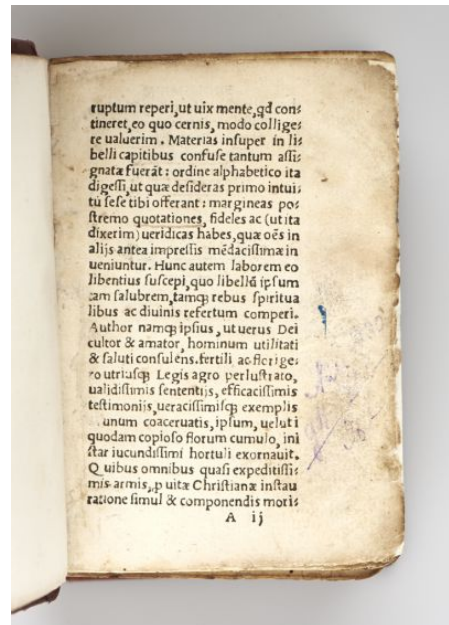 ruptum reperi,ut uix mente,qd con⸗
tineret,eo quo cernis, modo collige⸗
re ualuerim. Materias insuper in li⸗
belli capitibus confuse tantum assi⸗
gnatæ fuerāt: ordine alphabetico ita
digessi,ut quæ desideras primo intui⸗
tū sese tibi offerant: margineas po⸗
stremo quotationes, fideles ac (ut ita
dixerim) ueridicas habes,quæ oēs in
alijs antea impressis mēdacissimæ in
ueniuntur. Hunc autem laborem eo
libentius suscepi,quo libellū ipsum
tam salubrem,tamq; rebus spiritua
libus ac diuinis refertum comperi.
Author namq; ipsius, ut uerus Dei
cultor & amator, hominum utilitati
& saluti consulens.fertili ac florige⸗
ro utriusq; Legis agro perlustrato,
ualidissimis sententijs, efficacissimis
testimonijs,ueracissimisq; exemplis
unum coaceruatis,ipsum, uelut i
quodam copioso florum cumulo, in⸗
star iucundissimi hortuli exornauit.
Quibus omnibus quasi expeditissi⸗
mis armis,ꝓ uitæ Christianæ instau
ratione simul & componendis mori⸗
A ij